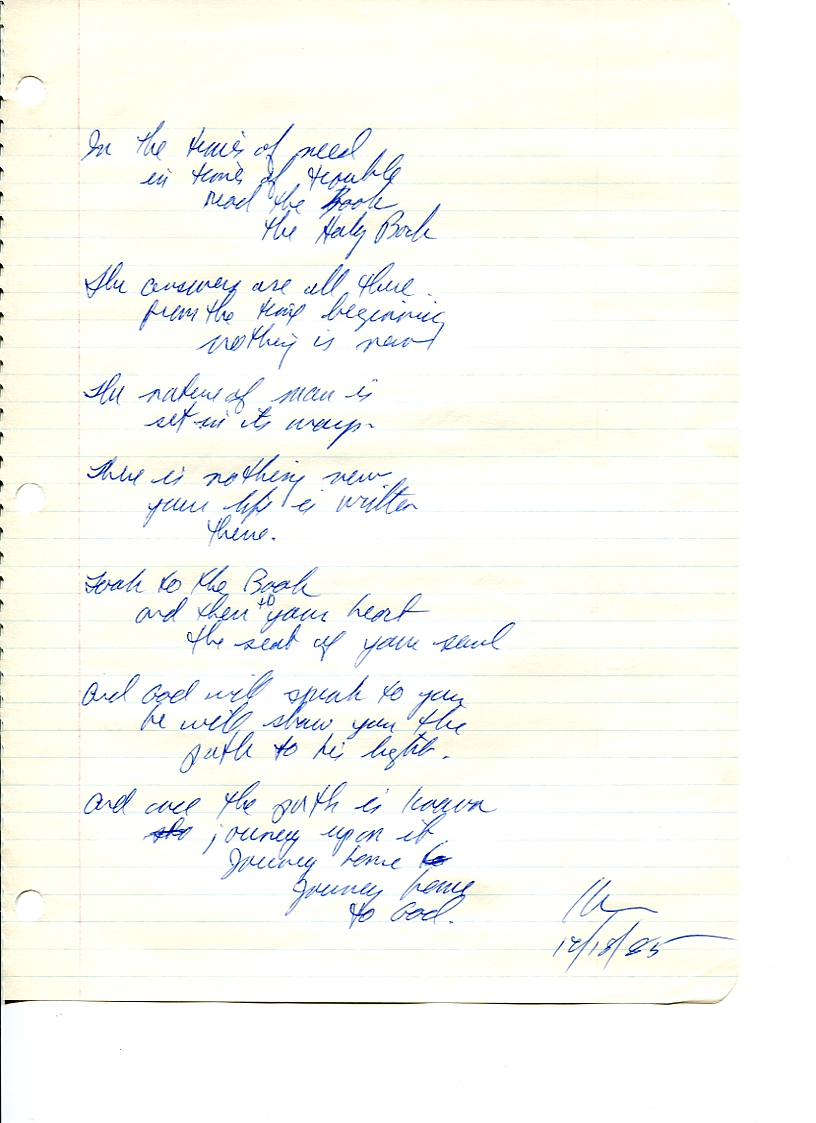 In the times of need
in times of trouble
read the Book
the Holy Book
The answers are all there.
from the time beginning
nothing is new
The nature of man is
set in its ways.
There is nothing new
your life is written
there.
Look to the Book
and then to your heart
the seat of your soul
And God will speak to you
he will show you the
path to his light.
And once the path is known
journey upon it.
Journey home to
Journey home
to God.
12/18/85